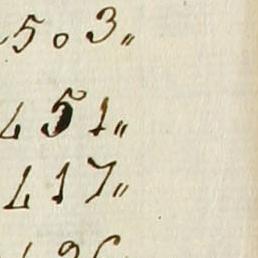 503"
451"
417"